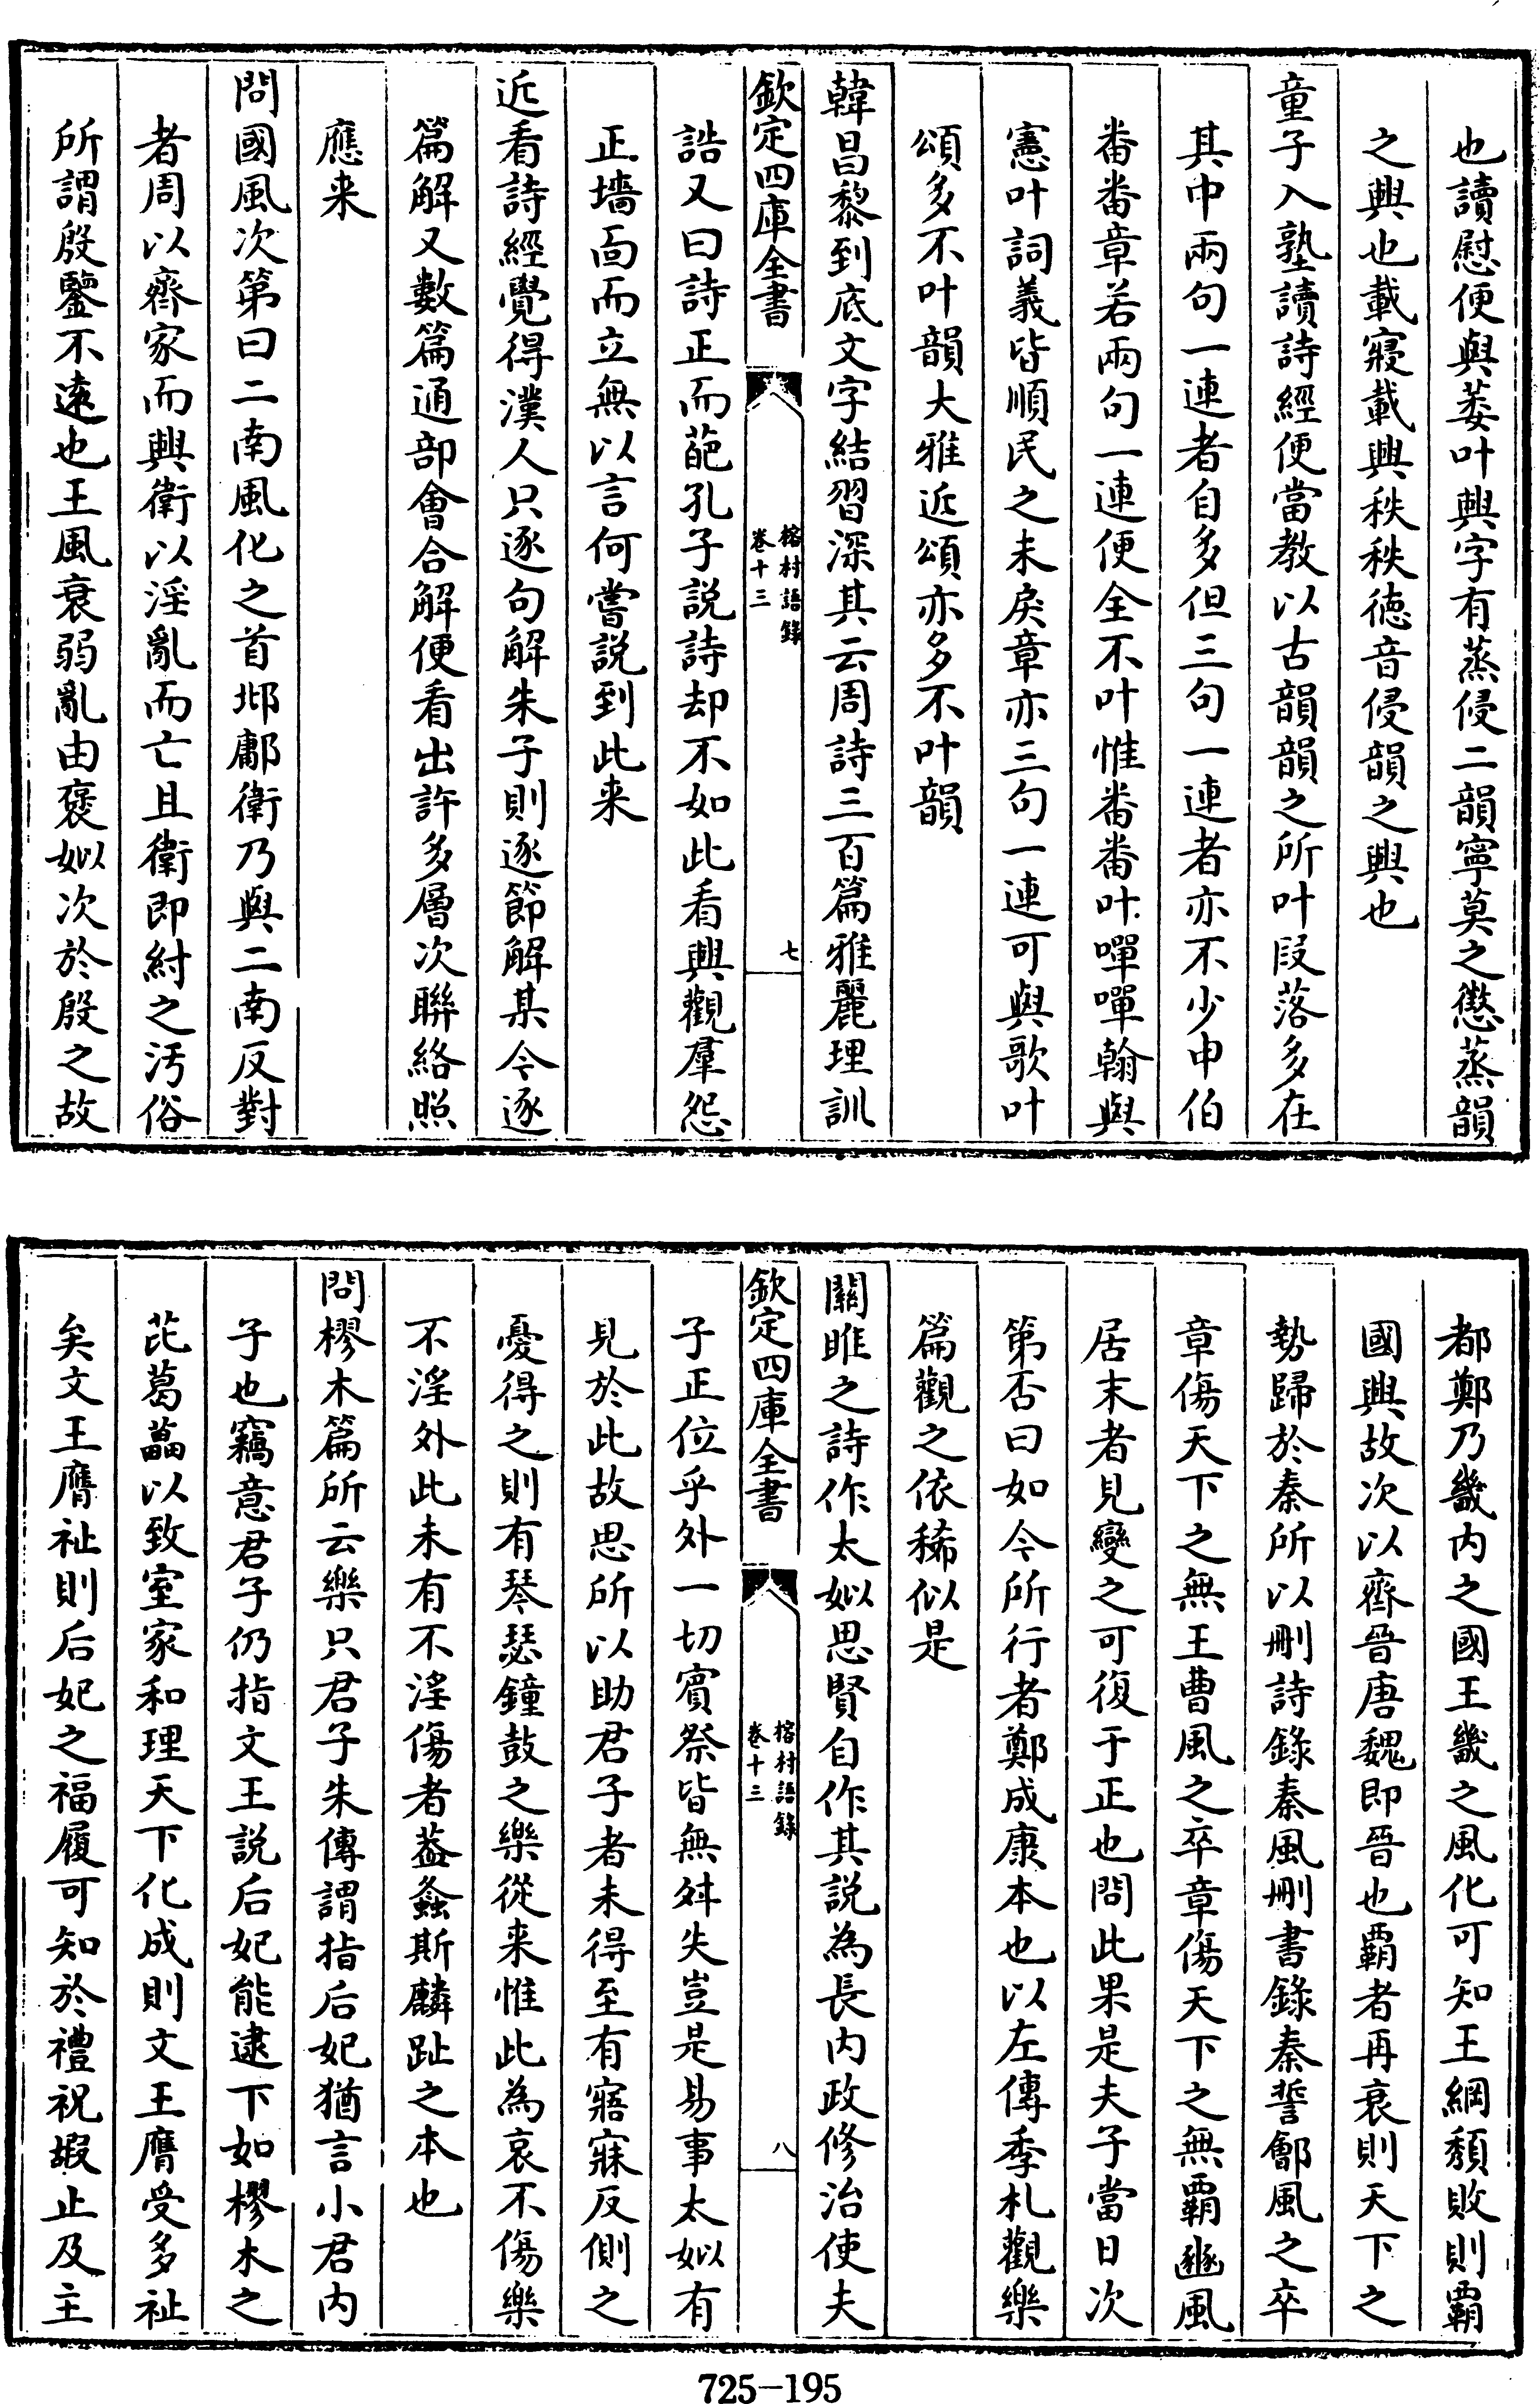 也讀慰便與萎叶興字有蒸侵二韻寧莫之懲蒸韻
之興也載寢載興秩秩徳音侵韻之興也
童子入塾讀詩經便當教以古韻韻之所叶段落多在
其中兩句一連者自多但三句一連者亦不少申伯
番番章若兩句一連便全不叶惟番番叶嘽嘽翰與
憲叶詞義皆順民之未戾章亦三句一連可與歌叶
頌多不叶韻大雅近頌亦多不叶韻
韓昌黎到底文字結習深其云周詩三百篇雅麗理訓
欽定四庫全書
榕村語錄
卷十三
七
誥又曰詩正而葩孔子説詩却不如此看興觀羣怨
正墻靣而立無以言何嘗説到此来
近看詩經覺得漢人只逐句解朱子則逐節解某今逐
篇解又數篇通部會合解便看出許多層次聯絡照
應来
問國風次第曰二南風化之首邶鄘衛乃與二南反對
者周以齊家而興衛以淫亂而亡且衛即紂之汚俗
所謂殷鑒不逺也王風衰弱亂由褒姒次於殷之故
都鄭乃畿内之國王畿之風化可知王綱頽敗則霸
國興故次以齊晉唐魏即晉也霸者再衰則天下之
勢歸於秦所以刪詩錄秦風刪書錄秦誓鄶風之卒
章傷天下之無王曹風之卒章傷天下之無霸豳風
居末者見變之可復于正也問此果是夫子當日次
第否曰如今所行者鄭成康本也以左傳季札觀樂
篇觀之依稀似是
關雎之詩作太姒思賢自作其説為長内政修治使夫
欽定四庫全書
榕村語錄
卷十三
八
子正位乎外一切賓祭皆無舛失豈是易事太姒有
見於此故思所以助君子者未得至有寤寐反側之
憂得之則有琴瑟鐘鼓之樂從来惟此為哀不傷樂
不淫外此未有不淫傷者葢螽斯麟趾之本也
問樛木篇所云樂只君子朱傳謂指后妃猶言小君内
子也竊意君子仍指文王説后妃能逮下如樛木之
芘葛藟以致室家和理天下化成則文王膺受多祉
矣文王膺祉則后妃之福履可知於禮祝嘏止及主
725-195